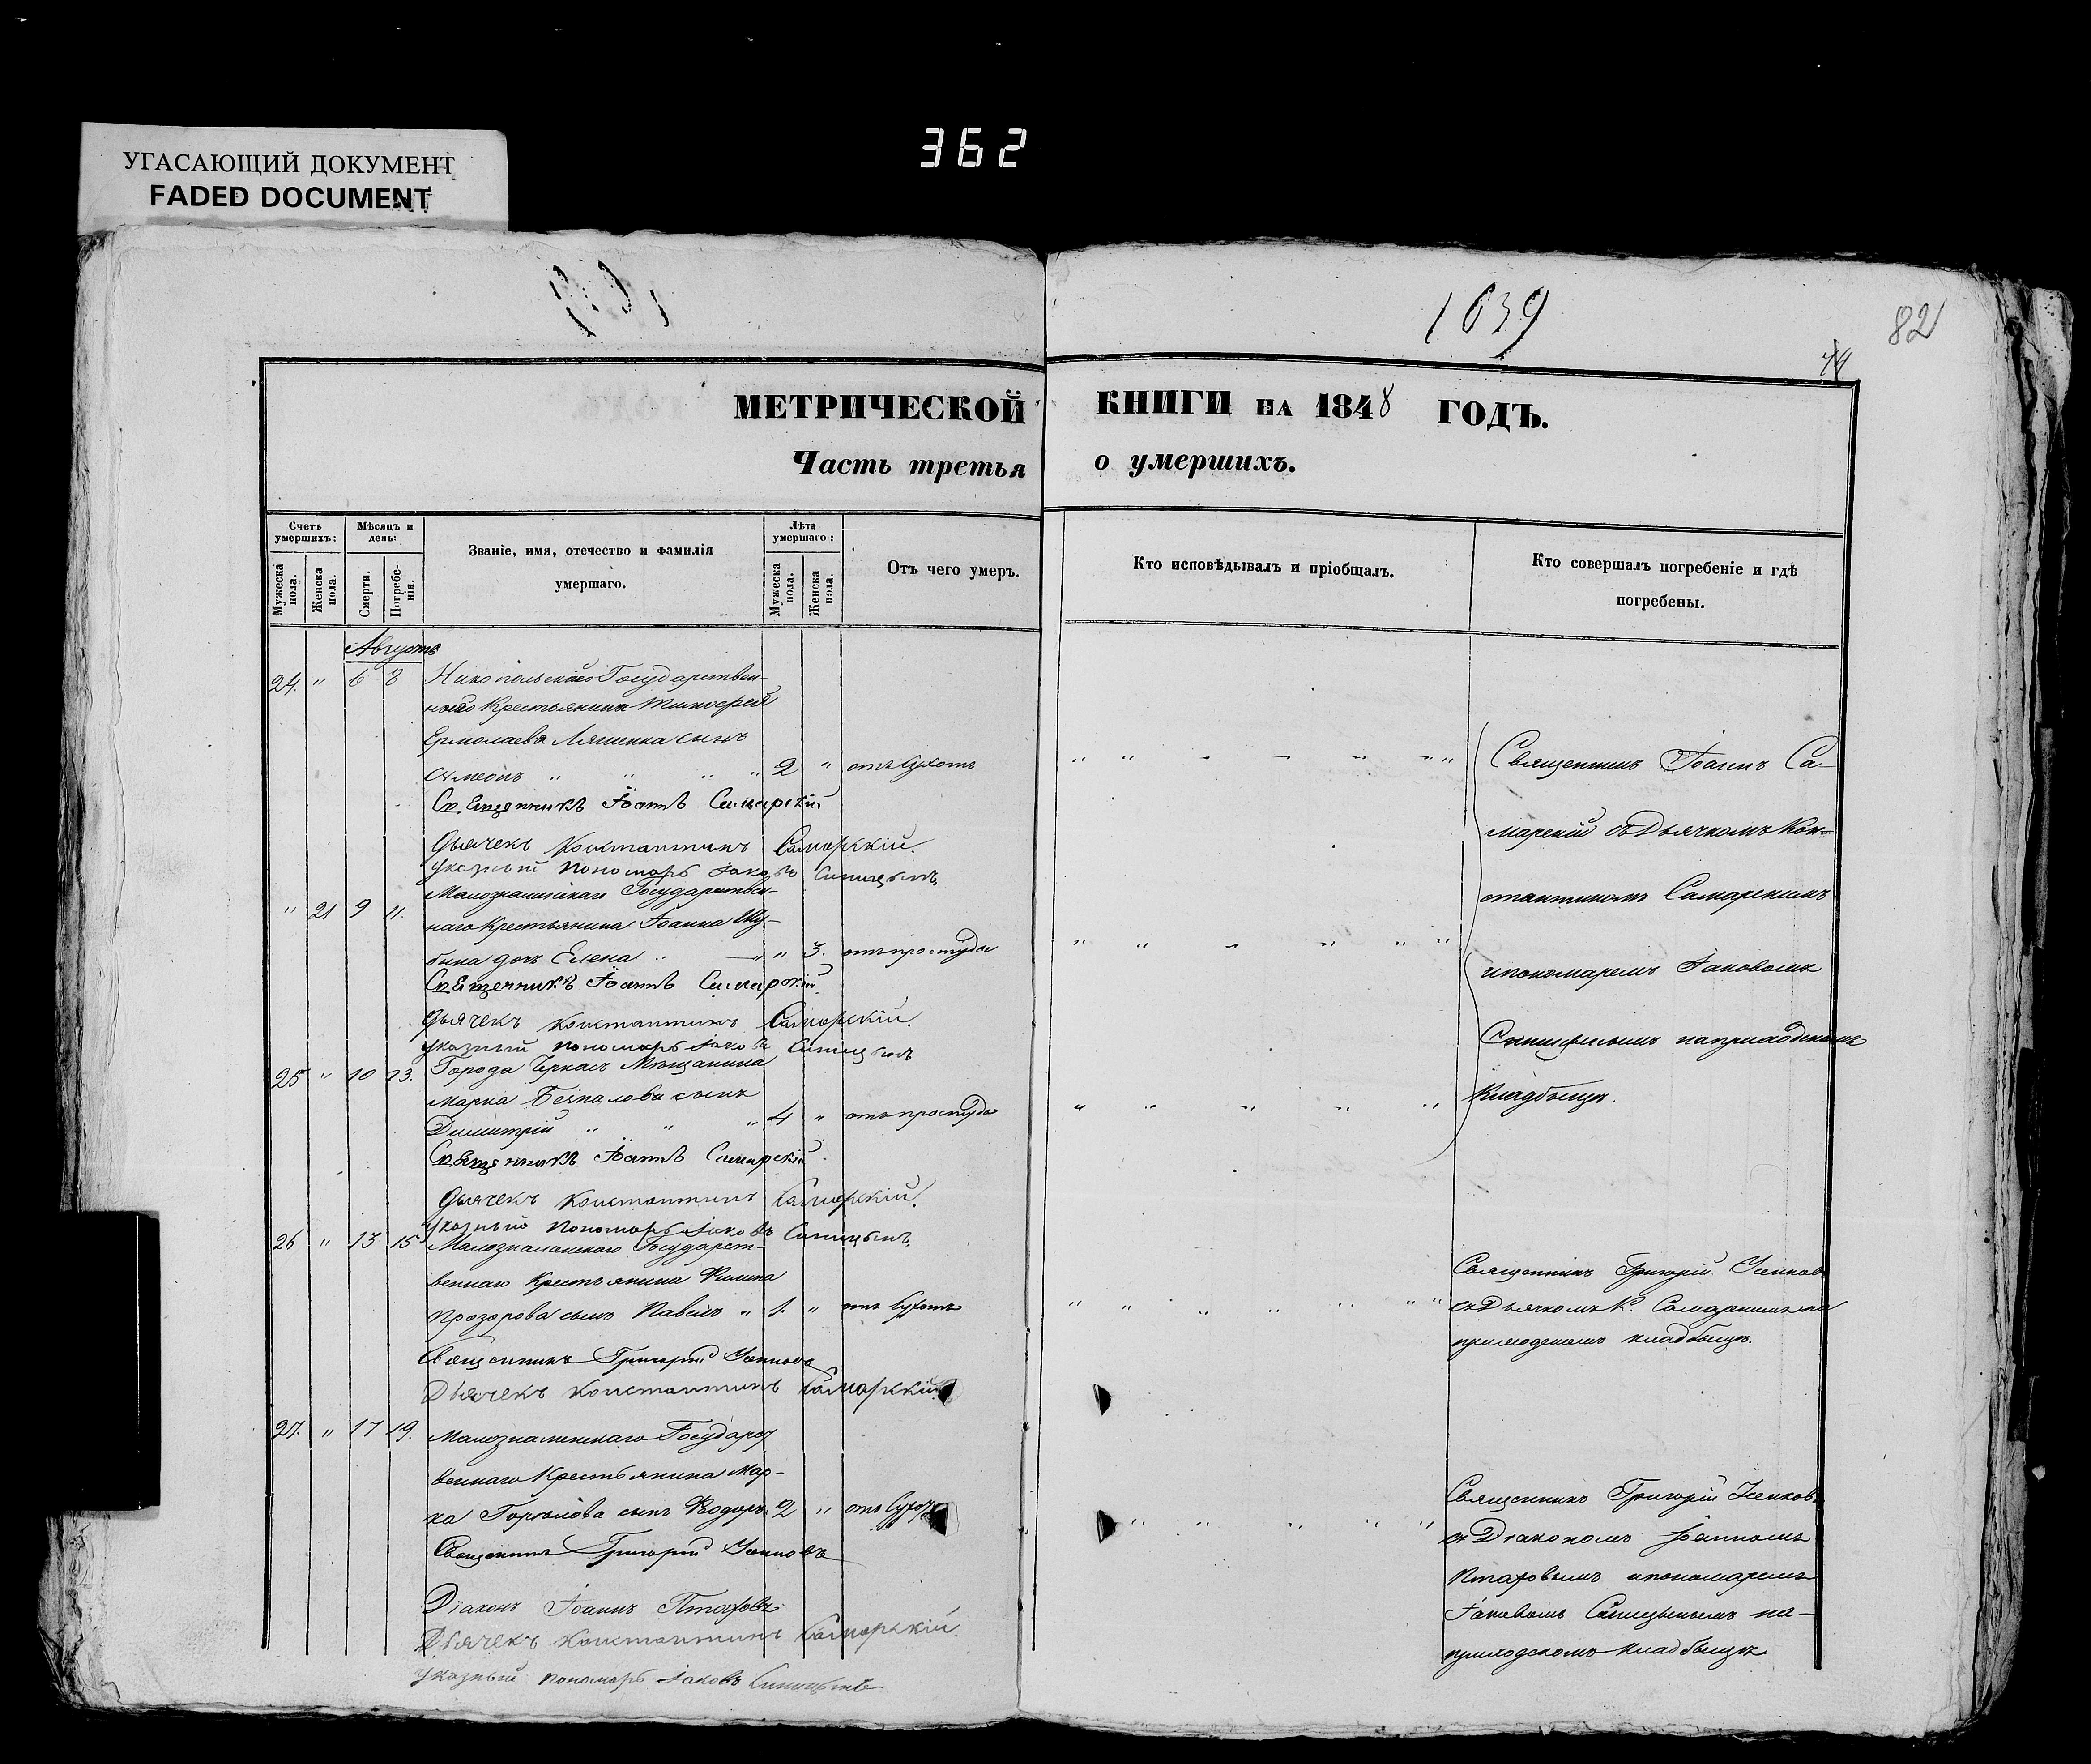 362
УГАСАЮЩИЙ ДОКУМЕНТ
FADED DOCUMENT
1039
82
МЕТРИЧЕСКОЙ КНИГИ НА 1848 ГОДЪ.
Часть третья о умершихъ.
Счетъ умершихъ:
Мѣсяцъ и день:
Званіе, имя, отечество и фамилія умершаго.
Лѣта умершаго:
Отъ чего умеръ.
Кто исповѣдывалъ и пріобщалъ.
Кто совершалъ погребеніе и гдѣ погребены.
Мужеска пола.
Женска пола.
Смерти.
Погребенія.
Мужеска пола.
Женска пола.
Августъ
24. " 6 8 Никопольскаго Государствен-
наго Крестьянина Тимофея
Ермолаева Ляшенка сынъ
Симеонъ " " " " 2 " отъ сухотъ
Священникъ Іоаннъ Самарскій
Дьячекъ Константинъ Самарскій.
Указный Пономарь Іаковъ Синицынъ
" 21 9 11. Малознаменскаго Государствен-
наго Крестьянина Іоанна Шу-
бина дочь Елена " " 3. отъ простуды
Священникъ Іоаннъ Самарскій
Дьячекъ Константинъ Самарскій.
Указный Пономарь Іаковъ Синицынъ
25 " 10 13. Города Черкасъ Мещанина
Марка сынъ
Димитрій " " " 4 " отъ простуды
Священникъ Іоаннъ Самарскій
Дьячекъ Константинъ Самарскій.
Указный Пономарь Іаковъ Синицынъ
26 " 13 15 Малознаменскаго Государст-
веннаго Крестьянина
Прозорова сынъ Павелъ " 1. " отъ сухотъ
Священникъ Григорій
Дьячекъ Константинъ Самарскій
27. " 17 19. Малознаменскаго Государст
веннаго Крестьянина Мар-
ка сынъ Ѳеодоръ 2 " отъ
Священникъ Григорій
Діаконъ Іоаннъ
Дьячекъ Константинъ Самарскій.
Указный Пономарь Іаковъ Синицынъ
Священникъ Іоаннъ Са-
марскій съ Дьячкомъ Кон-
стантиномъ Самарскимъ
и пономаремъ Іаковомъ
Синицынымъ на приходскомъ
кладбищѣ.
Священникъ Григорій
съ Дьячкомъ К. Самарскимъ на
приходскомъ кладбищѣ.
Священникъ Григорій
съ Діакономъ Іоанномъ
и пономаремъ
Іаковомъ Синицынымъ на-
приходскомъ кладбищѣ